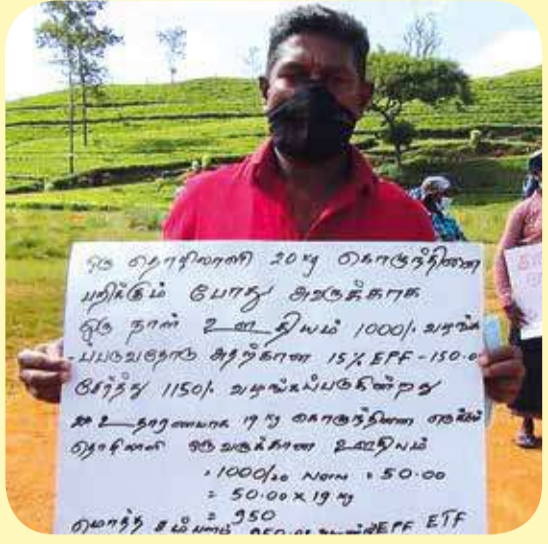 ஒரு தொழிலாளி 20 kg கொழுந்தினை
பறிக்கும் போது அவருக்காக
ஒரு நாள் ஊதியம் 1000/- வழங்க
-ப்படுவதோடு அதற்கான 15% EPF - 150.0
சேர்த்து 1150/- வழங்கப்படுகின்றது
உதாரணமாக 19 kg கொழுந்தினை எடுக்கும்
தொழிலாளி ஒருவருக்கான ஊதியம்
= 1000/20 Norm = 50.00
= 50.00 x 19 kg
= 950
மொத்த சம்பளம் 950.00 EPF ETF